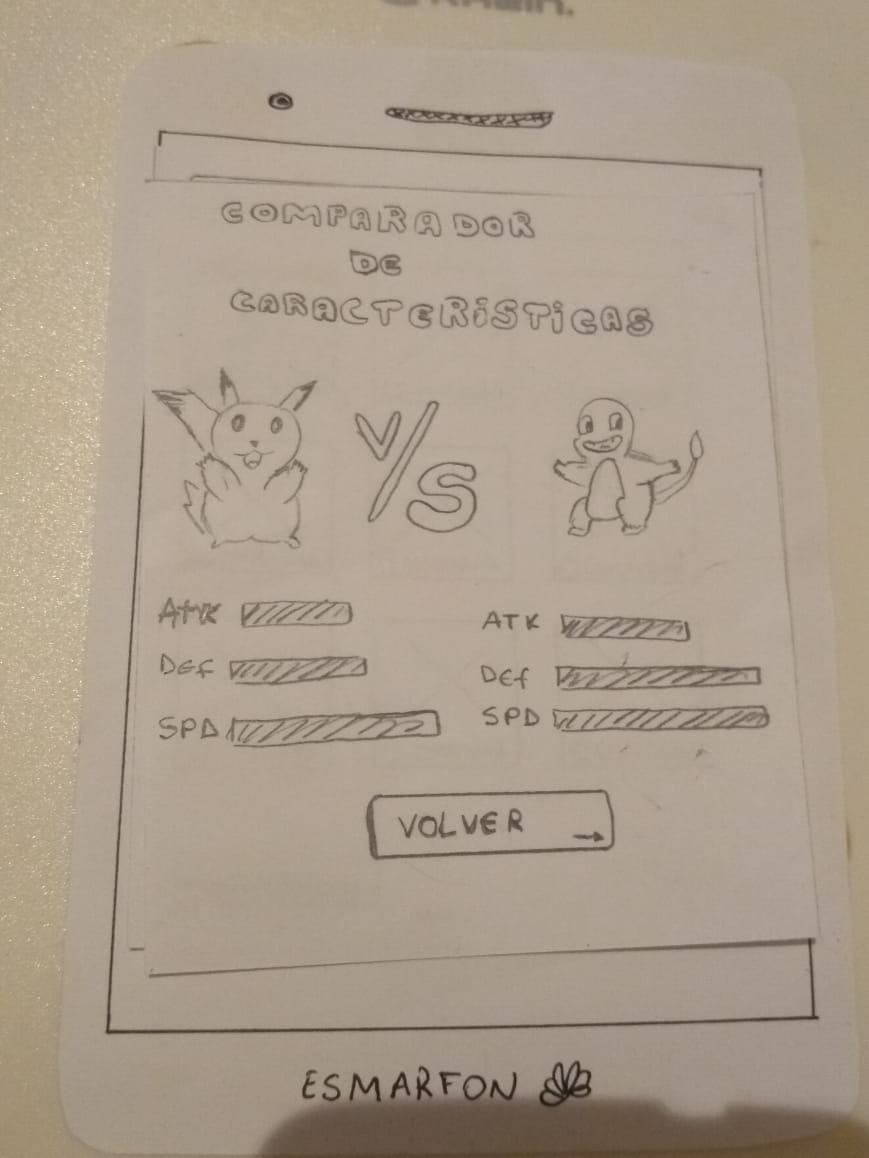 COMPARADOR
DE
CARACTERíSTiCAS
V/S
Atk
Def
SPD
ATK
Def
SPD
VOLVER →
ESMARFON